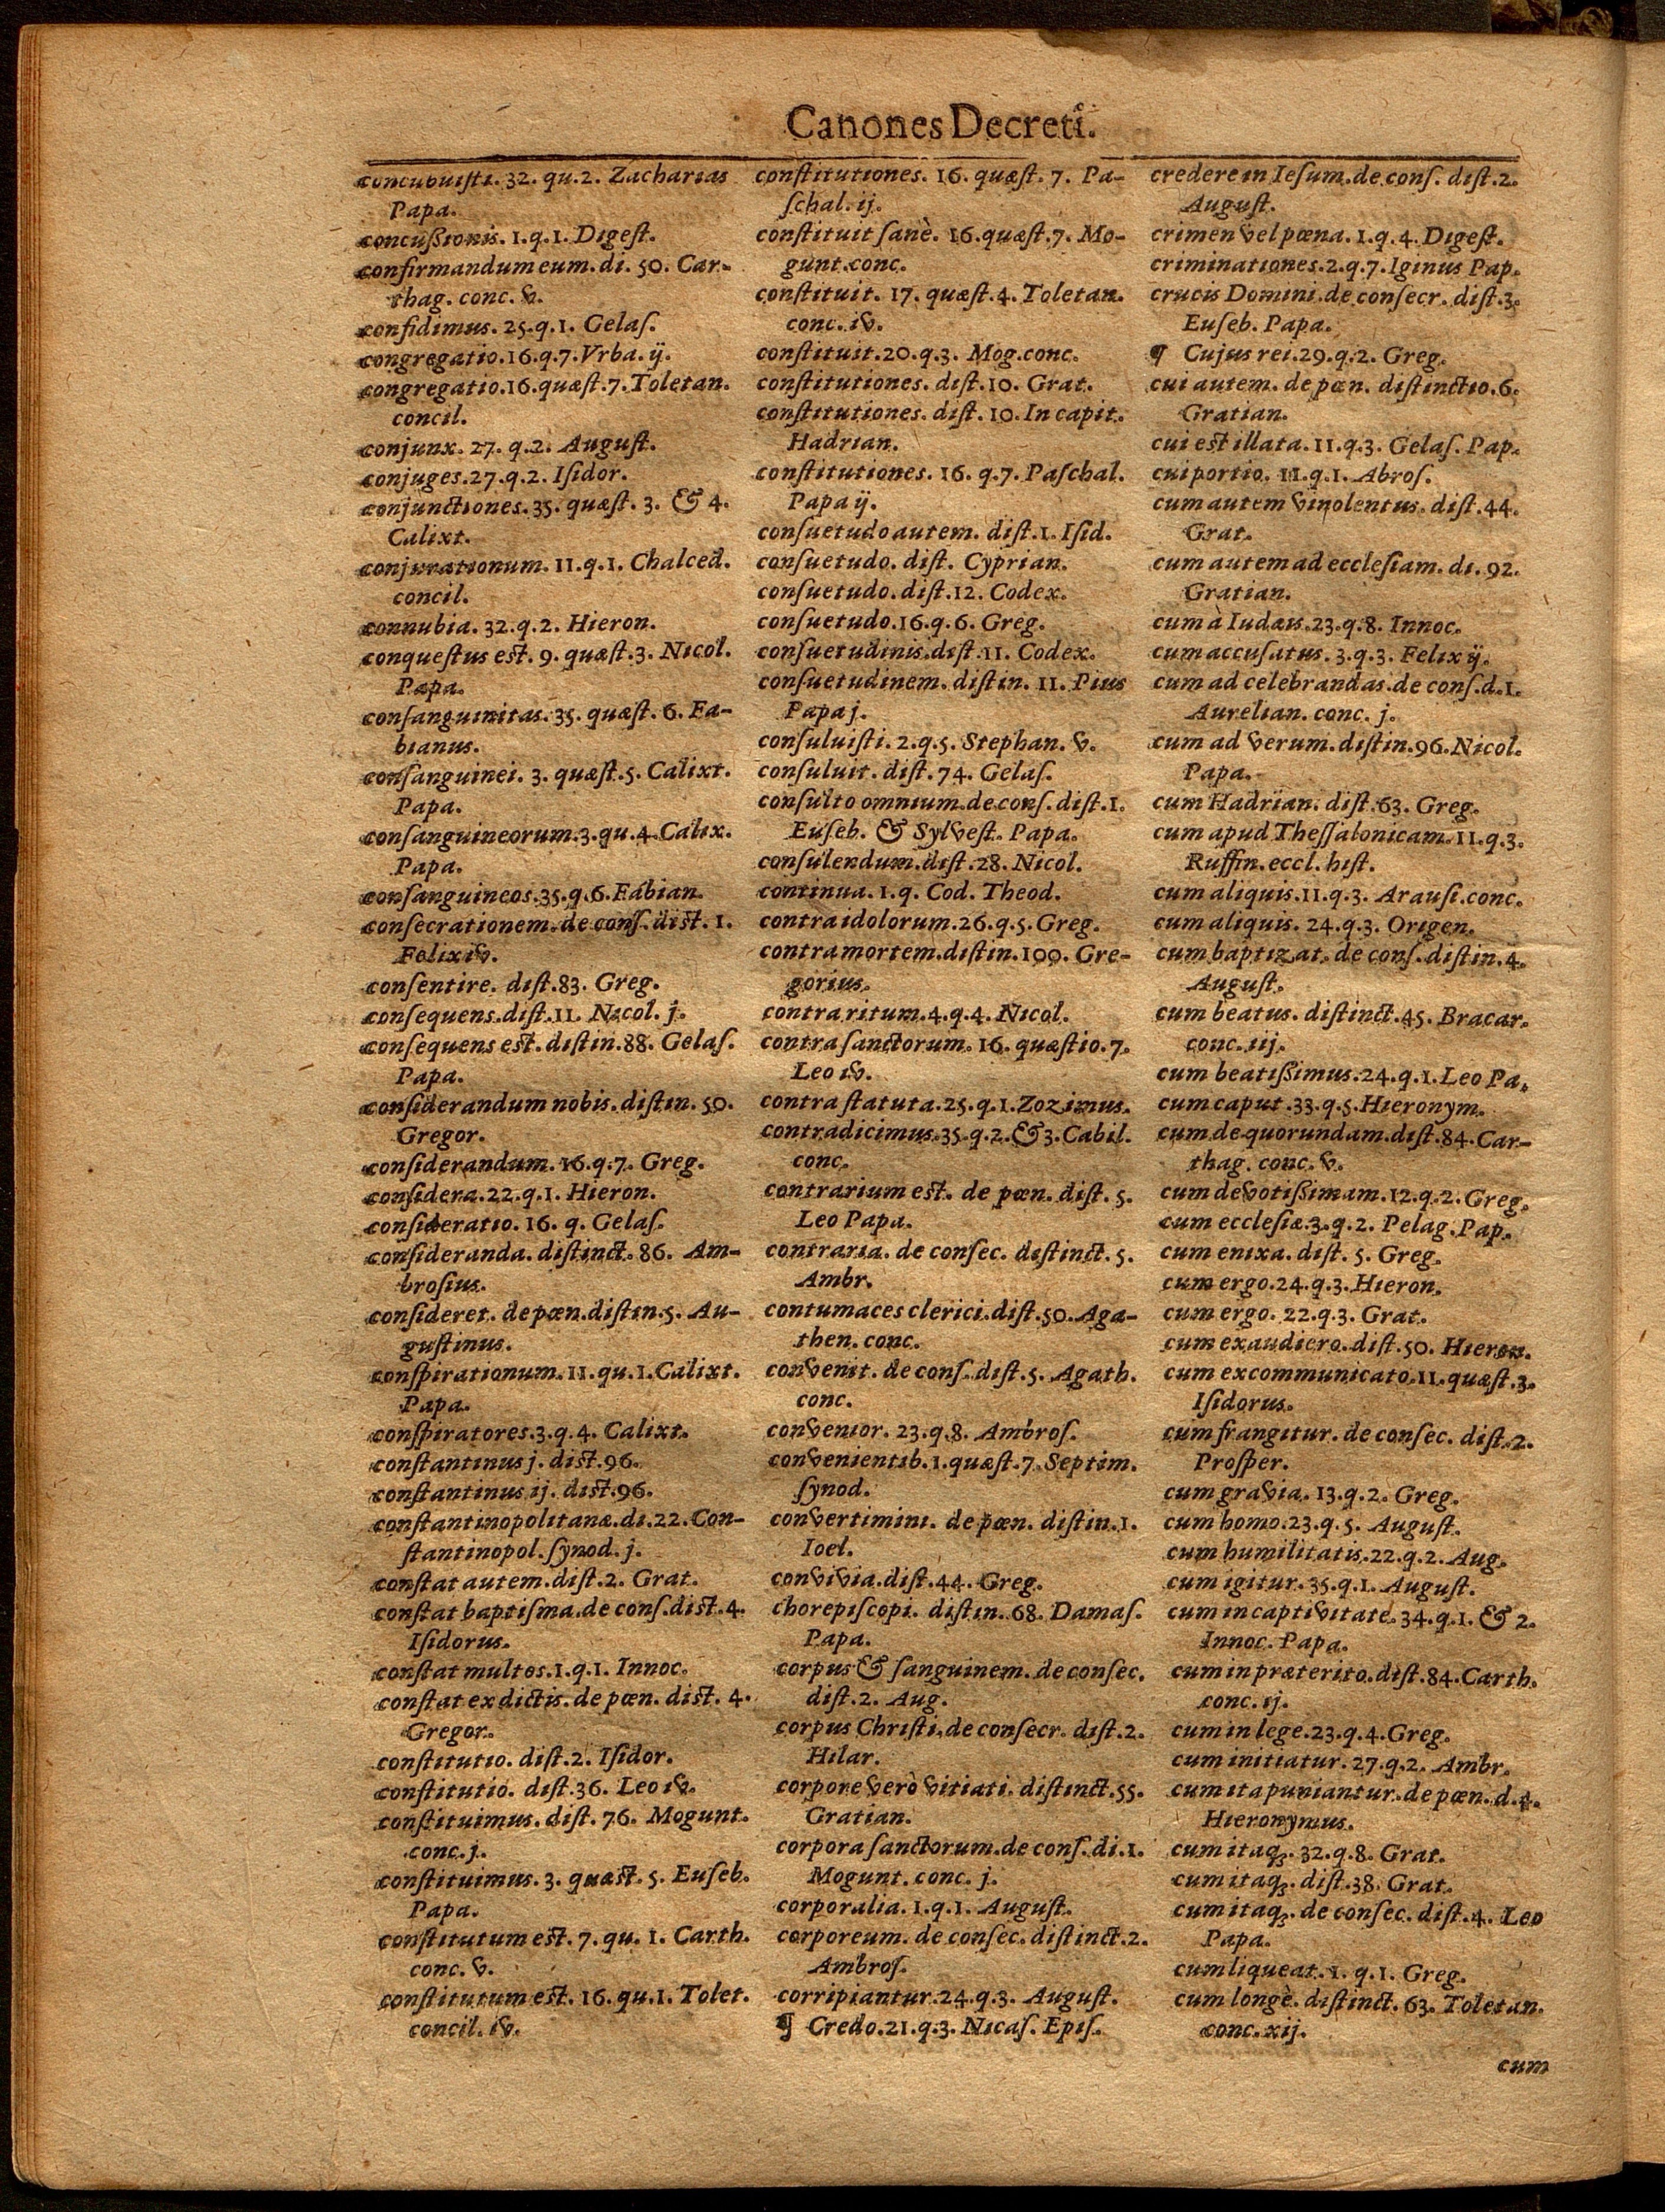 Canones Decreti.
concubuisti. 32. qu.2. Zacharias
Papa.
concußionis. 1.q.1. Digest.
confirmandum eum. di. 50. Car-
thag. conc. v.
confidimus. 25.q.1. Gelaſ.
congregatio.16.q.7.Vrba.ij.
congregatio.16.quæſt.7.Toletan.
concil.
conjunx. 27. q.2. Auguſt.
conjuges.27.q.2. Iſidor.
conjunctiones. 35. quæſt. 3. & 4.
Calixt.
conjurationum. 11.q.1. Chalced.
concil.
connubia. 32.q.2. Hieron.
conqueſtus est. 9. quæſt.3. Nicol.
Papa.
conſanguinitas. 35. quæſt. 6. Fa-
bianus.
conſanguinei. 3. quæſt.5. Calixt.
Papa.
conſanguineorum.3.qu.4.Calix.
Papa.
conſanguineos.35.q.6.Fabian.
conſecrationem.de conſ. dist. 1.
Felix iv.
conſentire. diſt.83. Greg.
conſequens.diſt.11. Nicol. j.
conſequens est. diſtin.88. Gelaſ.
Papa.
conſiderandum nobis. diſtin. 50.
Gregor.
conſiderandum. 16.q.7. Greg.
conſidera.22.q.1. Hieron.
conſideratio. 16. q. Gelaſ.
conſideranda. diſtinct. 86. Am-
broſius.
conſideret. de pœn.diſtin.5. Au-
gustinus.
conſpirationum. 11. qu.1.Calixt.
Papa.
conſpiratores.3.q.4. Calixt.
constantinus j. dist.96.
conſtantinus ij. dist.96.
conſtantinopolitanæ.di.22.Con-
ſtantinopol. ſynod. j.
conſtat autem.diſt.2. Grat.
conſtat baptiſma.de conſ.dist.4.
Iſidorus.
conſtat multos.1.q.1. Innoc.
conſtat ex dictis. de pœn. dist. 4.
Gregor.
conſtitutio. diſt.2. Iſidor.
conſtitutio. diſt.36. Leo iv.
conſtituimus. diſt. 76. Mogunt.
conc. j.
conſtituimus. 3. quæst. 5. Euſeb.
Papa.
conſtitutum est. 7. qu. 1. Carth.
conc. v.
conſtitutum est. 16. qu.1. Tolet.
concil. iv.
conſtitutiones. 16. quæſt. 7. Pa-
ſchal. ij.
conſtituit ſanè. 16.quæſt.7. Mo-
gunt.conc.
conſtituit. 17. quæſt.4. Toletan.
conc. iv.
conſtituit.20.q.3. Mog.conc.
conſtitutiones. diſt.10. Grat.
conſtitutiones. diſt. 10. In capit.
Hadrian.
conſtitutiones. 16. q.7. Paſchal.
Papa ij.
conſuetudo autem. diſt.1. Iſid.
conſuetudo. diſt. Cyprian.
conſuetudo. diſt.12. Codex.
conſuetudo.16.q.6. Greg.
conſuetudinis.diſt.11. Codex.
conſuetudinem. diſtin. 11. Pius
Papa j.
conſuluiſti. 2.q.5. Stephan. v.
conſuluit. diſt. 74. Gelaſ.
conſulto omnium.de conſ. diſt.1.
Euſeb. & Sylveſt. Papa.
conſulendum.diſt.28. Nicol.
continua. 1.q. Cod. Theod.
contra idolorum.26.q.5.Greg.
contra mortem.diſtin.100. Gre-
gorius.
contra ritum.4.q.4. Nicol.
contra ſanctorum. 16. quæſtio.7.
Leo iv.
contra ſtatuta.25.q.1.Zozimus.
contradicimus.35.q.2.&3.Cabil.
conc.
contrarium est. de pœn. diſt. 5.
Leo Papa.
contraria. de conſec. diſtinct. 5.
Ambr.
contumaces clerici.diſt.50.Aga-
then. conc.
convenit. de conſ.diſt.5. Agath.
conc.
convenior. 23.q.8. Ambroſ.
convenientib.1.quæſt.7.Septim.
ſynod.
convertimini. de pœn. diſtin.1.
Ioel.
convivia.diſt.44. Greg.
chorepiſcopi. diſtin. 68. Damaſ.
Papa.
corpus & ſanguinem. de conſec.
diſt.2. Aug.
corpus Chriſti.de conſecr. diſt.2.
Hilar.
corpore verò vitiati. diſtinct.55.
Gratian.
corpora ſanctorum.de conſ. di.1.
Mogunt. conc. j.
corporalia. 1.q.1. Auguſt.
corporeum. de conſec. diſtinct.2.
Ambroſ.
corripiantur.24.q.3. Auguſt.
¶ Credo.21.q.3. Nicaſ. Epiſ.
credere in Ieſum.de conſ. diſt.2.
Auguſt.
crimen vel pœna. 1.q.4. Digeſt.
criminationes.2.q.7.Iginus Pap.
crucis Domini.de conſecr. diſt.3.
Euſeb. Papa.
¶ Cujus rei.29.q.2. Greg.
cui autem. de pœn. diſtinctio.6.
Gratian.
cui est illata. 11.q.3. Gelaſ. Pap.
cui portio. 11.q.1. Abroſ.
cum autem vinolentus. diſt.44.
Grat.
cum autem ad eccleſiam. di.92.
Gratian.
cum à Iudæis.23.q.8. Innoc.
cum accuſatus. 3.q.3. Felix ij.
cum ad celebrandas.de conſ.d.1.
Aurelian. conc. j.
cum ad verum.diſtin.96.Nicol.
Papa.
cum Hadrian. diſt.63. Greg.
cum apud Theſſalonicam.11.q.3.
Ruffin.eccl. hiſt.
cum aliquis.11.q.3. Arauſi.conc.
cum aliquis. 24.q.3. Origen.
cum baptizat. de conſ.diſtin.4.
Auguſt.
cum beatus. diſtinct.45. Bracar.
conc. iij.
cum beatißimus.24.q.1.Leo Pa.
cum caput.33.q.5.Hieronym.
cum de quorundam.diſt.84.Car-
thag. conc. v.
cum devotißimam.12.q.2.Greg.
cum eccleſiæ.3.q.2. Pelag.Pap.
cum enixa. diſt. 5. Greg.
cum ergo.24.q.3.Hieron.
cum ergo. 22.q.3. Grat.
cum exaudiero.diſt.50. Hieron.
cum excommunicato.11.quæſt.3.
Iſidorus.
cum frangitur. de conſec. diſt.2.
Proſper.
cum gravia. 13.q.2. Greg.
cum homo.23.q.5. Auguſt.
cum humilitatis.22.q.2. Aug.
cum igitur.35.q.1. Auguſt.
cum in captivitate.34.q.1. & 2.
Innoc. Papa.
cum in præterito.diſt.84.Carth.
conc. ij.
cum in lege.23.q.4.Greg.
cum initiatur. 27.q.2. Ambr.
cum ita puniantur.de pœn. d.4.
Hieronymus.
cum itaq;. 32.q.8. Grat.
cum itaq;. diſt.38. Grat.
cum itaq;. de conſec. diſt.4. Leo
Papa.
cum liqueat. 1. q.1. Greg.
cum longè. diſtinct. 63. Toletan.
conc. xij.
cum